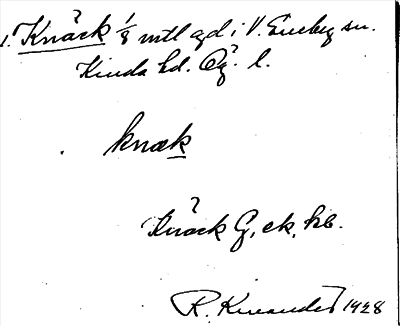 1. Knäck 1/8 mtl gd i V. Eneby sn.
Kinda hd. Ög. l.
knæk
Knäck G, ek, kb.
R. 1928